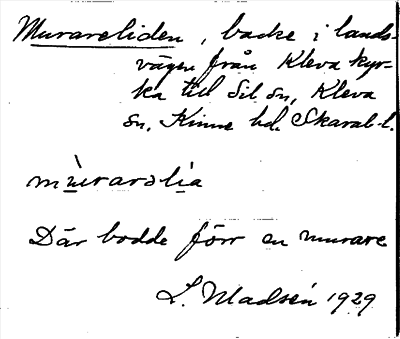 Murareliden, backe i lands-
vägen från Kleva kyr-
ka till Sil sn, Kleva
sn, Kinne hd. Skarab. l.
mùrarəlìa
Där bodde förr en murare
L. Madsén 1929